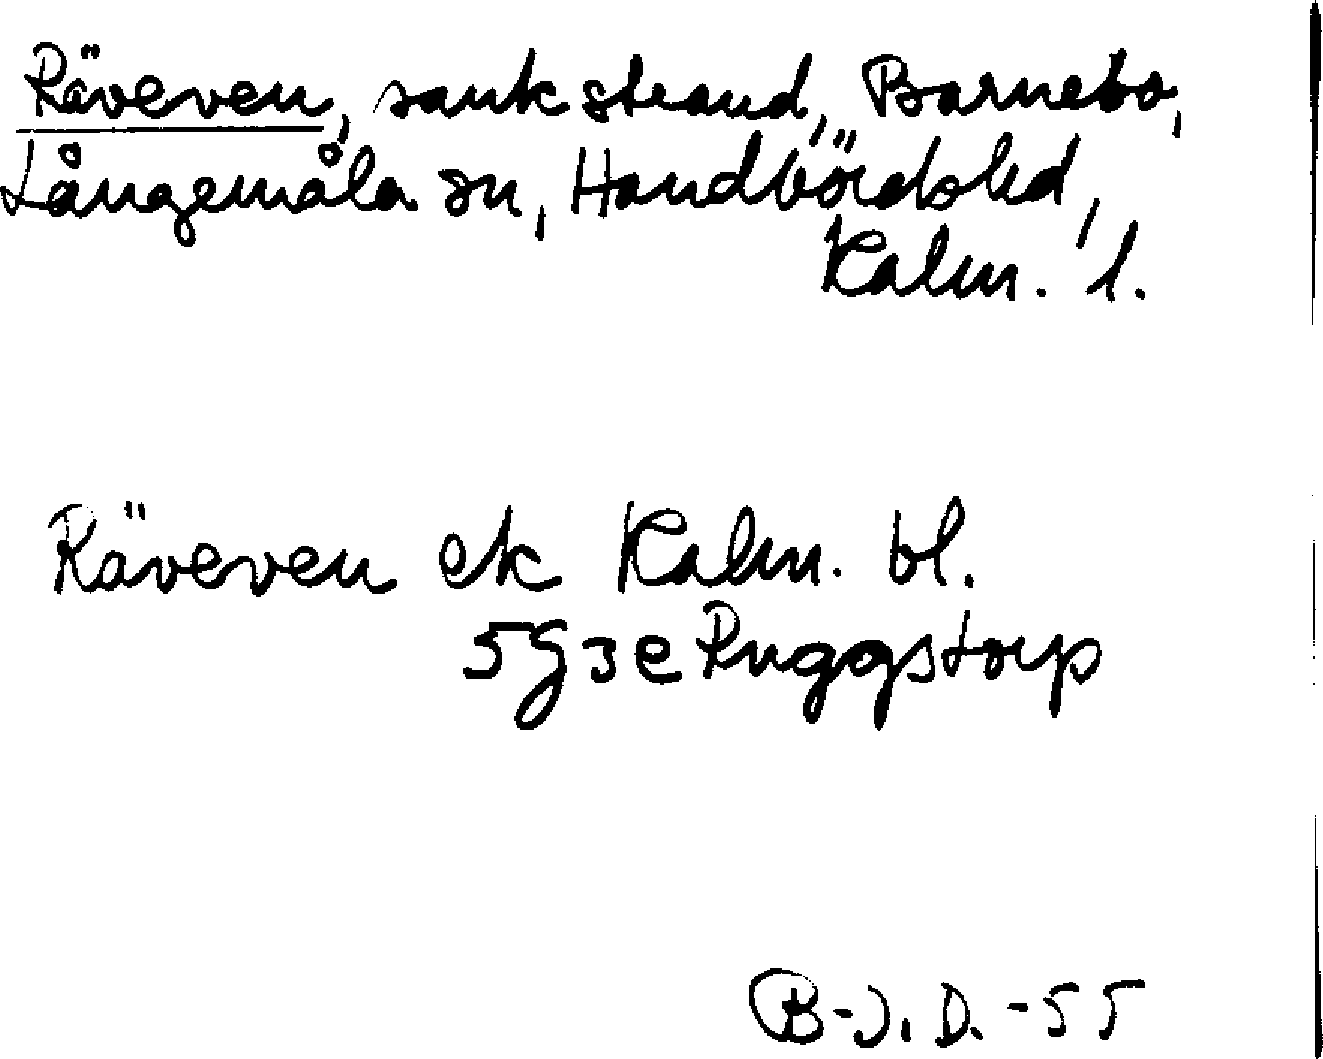 Räveven, sank strand, Barnebo,
Långemåla sn, Handbördshd,
Kalm. l.
Räveven ek Kalm. bl.
5g3e Ruggstorp
B-J.D.-55